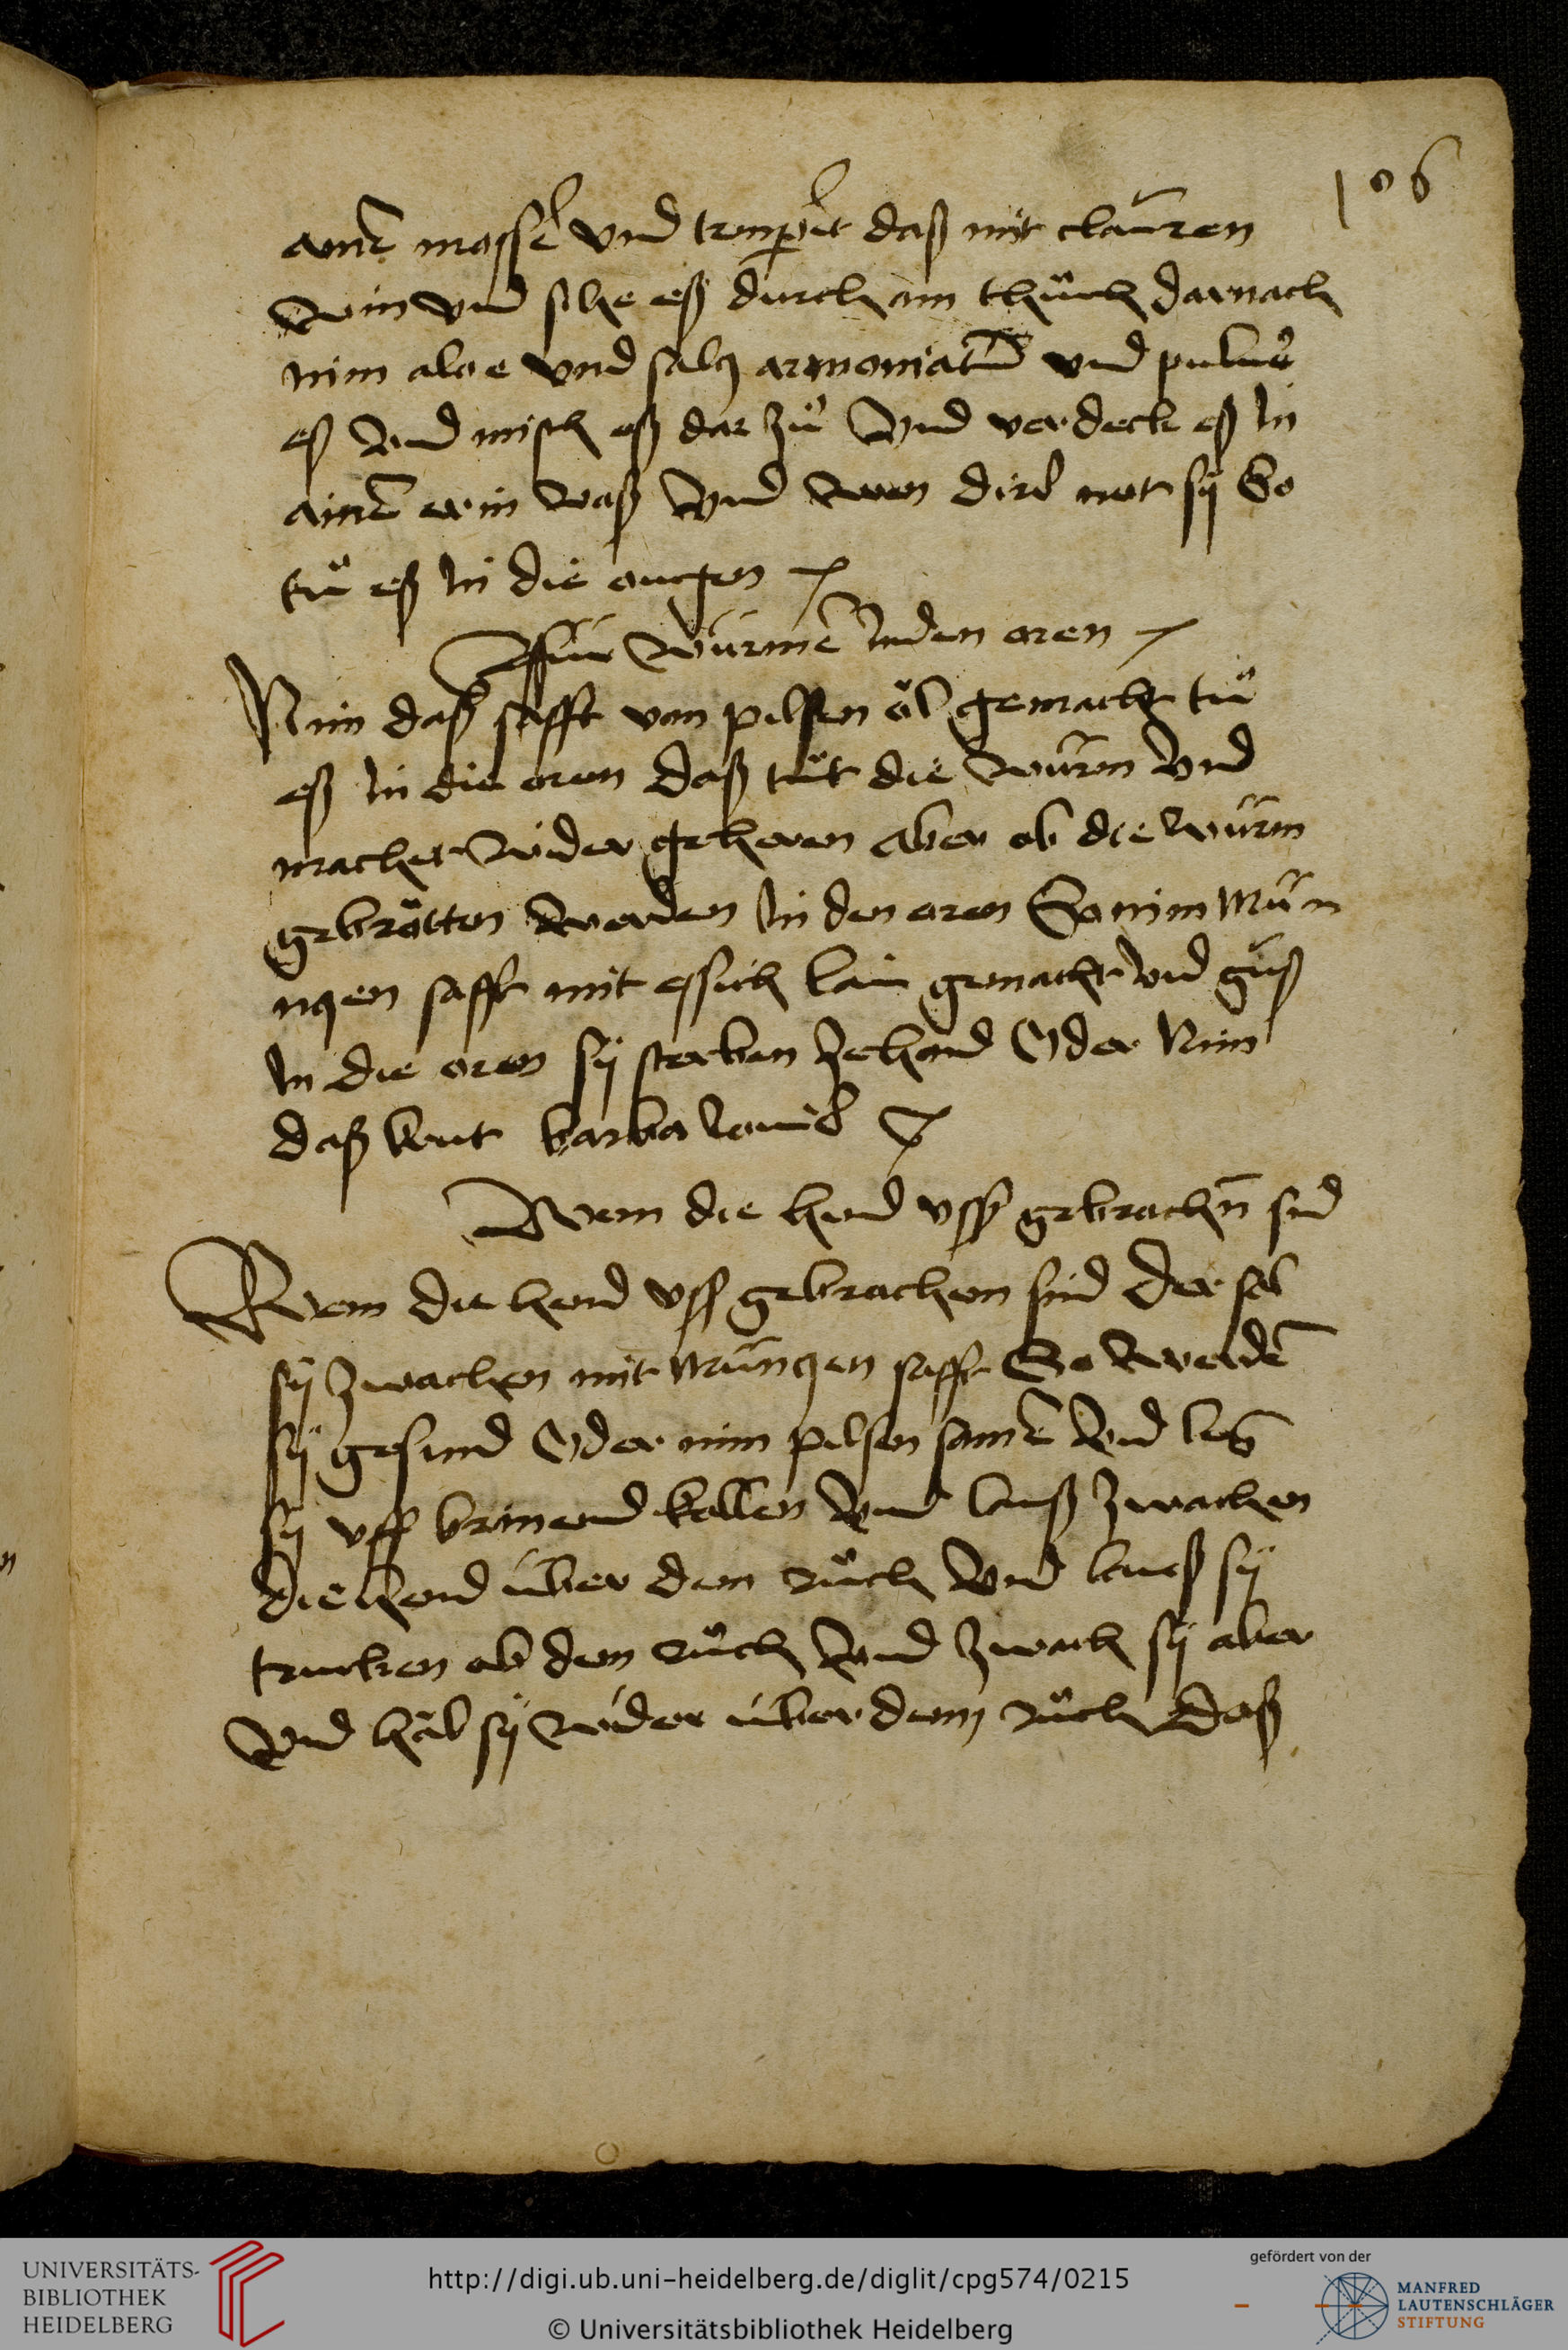 106
ainr̄ messē vnd tempeͤrir daß mit clāuren
win vnd sihe eß durch ain thuͦch darnach
nim aloe vnd salcz armoniacū vnd puluer
eß vnd misch eß dar zuͦ vnd verdeck eß In
ainē erin vaß vnd wen dirs not sÿ So
tuͦ eß In die augen
ffúr wúrme Inden oren
Nim daß safft von pilssen oͤl gemacht tuͦ
eß In die oren daß tuͤt die wúrm vnd
machet wider geheren aber ob die wúrm
gebraͤtten werden In den oren So nim Mún
nczen safft mit essich law gemacht vnd gúß
In die oren sÿ sterben zehand Oder Nim
daß krut barba Iouis
Wem die hend vss gebrachn̄ sind
Wem die hend vss gebrachen sind der sol
sÿ zwachen mit Múnczen safft So werdē
sÿ gesund Oder nim pilsen samē vnd leg
sÿ vff brinend kollen vnd lauß zwachen
die hend úber dem ruͦch vnd lauß sÿ
trucken ob dem ruͦch vnd zwach sÿ aber
vnd hab sÿ wider úber dem ruͦch daß
UNIVERSITÄTS-
BIBLIOTHEK
HEIDELBERG
http://digi.ub.uni-heidelberg.de/diglit/cpg574/0215
© Universitätsbibliothek Heidelberg
gefördert von der
MANFRED
LAUTENSCHLÄGER
STIFTUNG